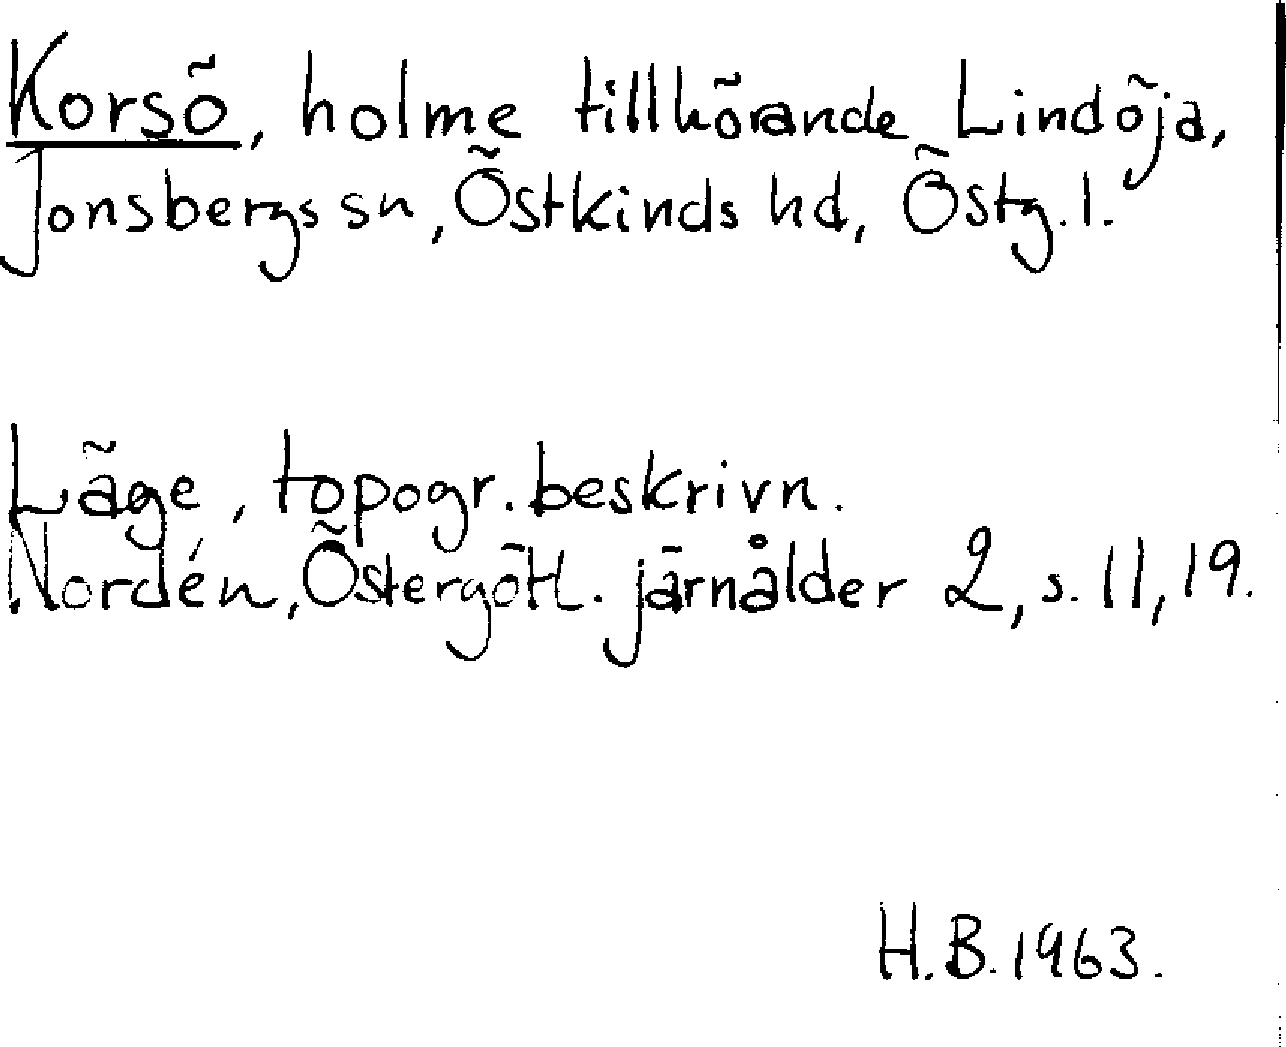 Korsö, holme tillhörande Lindöja,
Jonsbergs sn, Östkinds hd, Östg.l.
Läge, topogr. beskrivn.
Nordén, Östergötl. järnålder 2, s. 11, 19.
H.B. 1963.